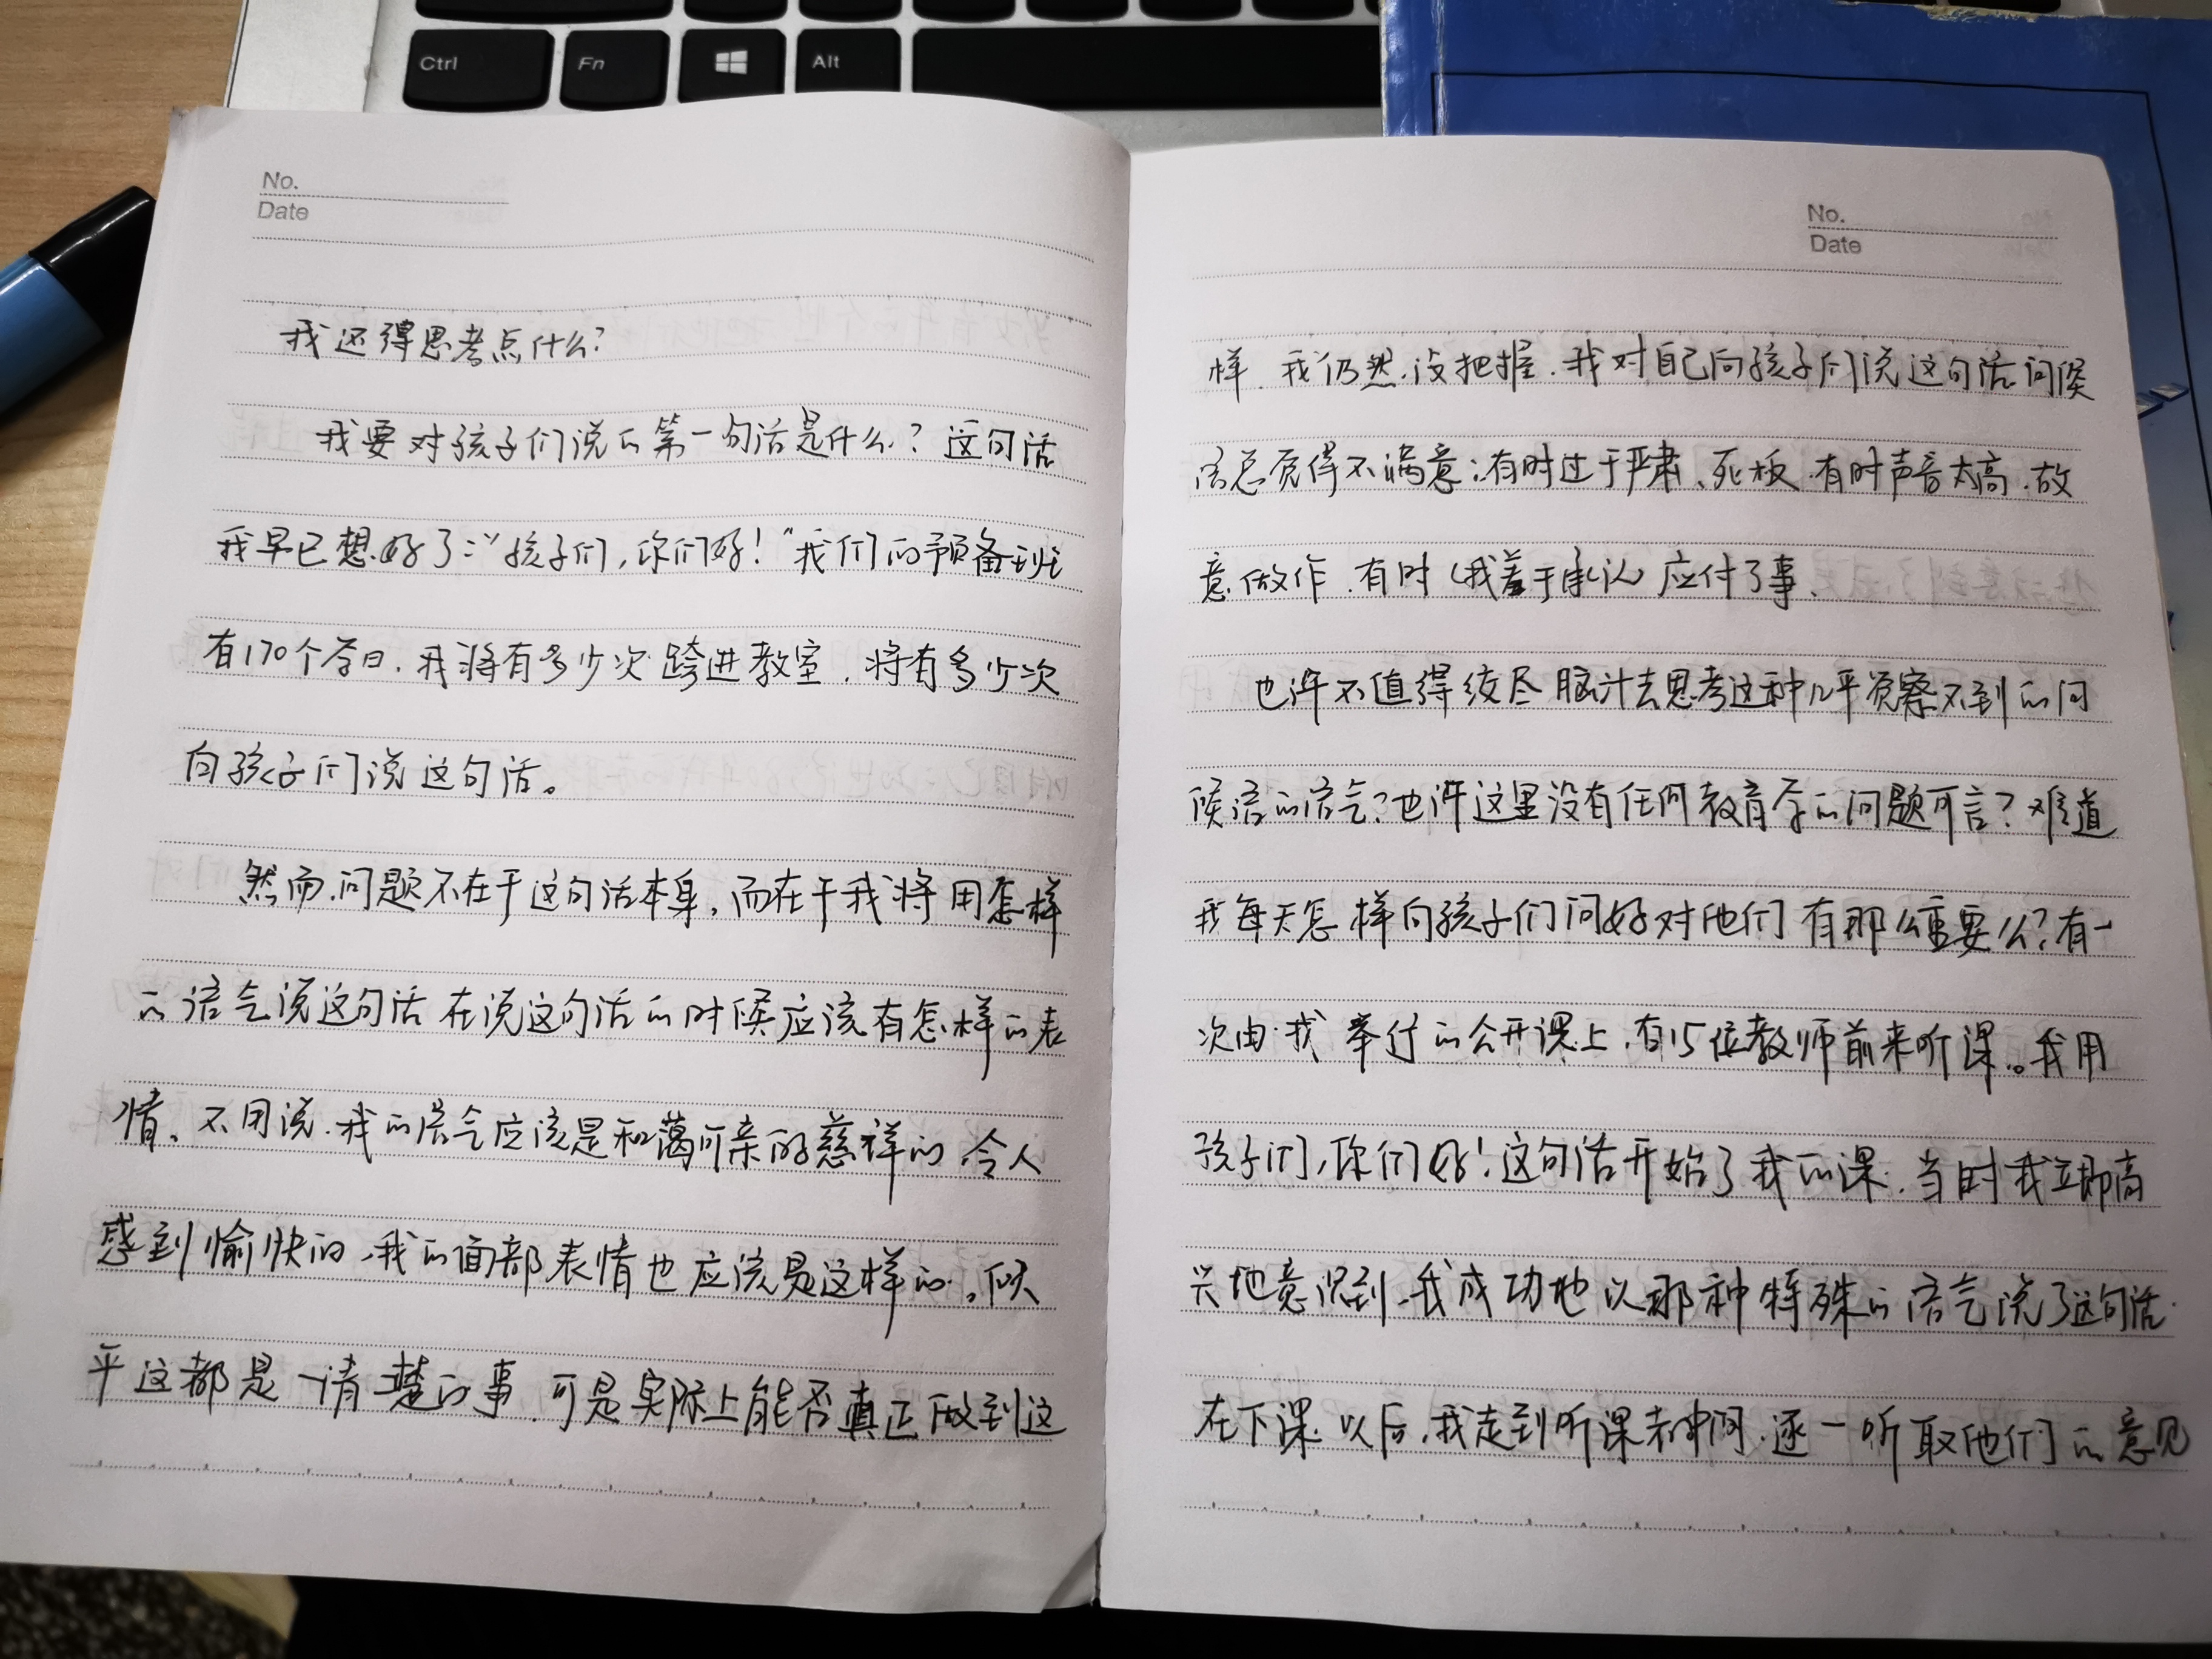 Ctrl
Fn
Alt
No.
Date
我还得思考点什么?
我要对孩子们说的第一句话是什么?这句话
我早已想好了:“孩子们,你们好!”我们的预备班
有170个学日.我将有多少次跨进教室,将有多少次
向孩子们说这句话。
然而,问题不在于这句话本身,而在于我将用怎样
的语气说这句话在说这句话的时候应该有怎样的表
情。不用说.我的语气应该是和蔼可亲的慈祥的 令人
感到愉快的,我的面部表情也应该是这样的。似
乎这都是清楚的事.可是实际上能否真正做到这
No.
Date
样.我仍然没把握.我对自己向孩子们说这句话问候
语总觉得不满意:有时过于严肃、死板.有时声音太高.故
意做作.有时(我羞于承认)应付了事.
也许不值得绞尽脑汁去思考这种几乎觉察不到的问
候语的语气?也许这里没有任何教育学的问题可言?难道
我每天怎样向孩子们问好对他们有那么重要么?有一
次由我举行的公开课上,有15位教师前来听课。我用
孩子们,你们好!这句话开始了我的课.当时我立即高
兴地意识到,我成功地以那种特殊的语气说了这句话.
在下课以后,我走到听课者中间.逐一听取他们的意见